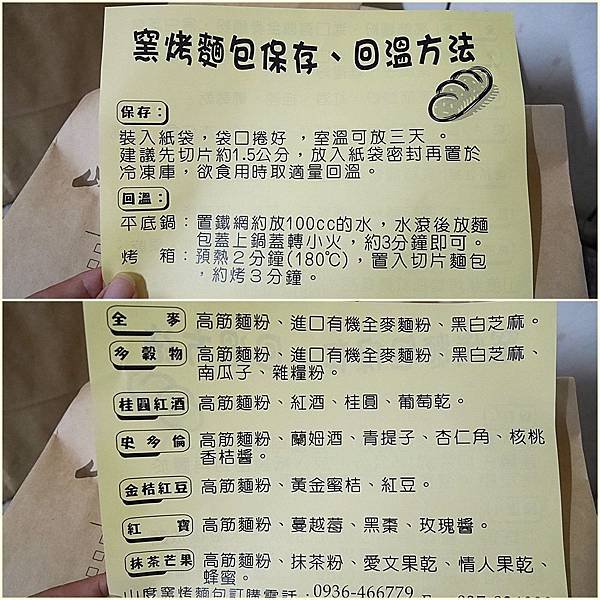 窯烤麵包保存、回溫方法
保存：
裝入紙袋，袋口捲好，室溫可放三天。
建議先切片約1.5公分，放入紙袋密封再置於
冷凍庫，欲食用時取適量回溫。
回溫：
平底鍋：置鐵網約放100cc的水，水滾後放麵
包蓋上鍋蓋轉小火，約3分鐘即可。
烤　箱：預熱２分鐘(180℃)，置入切片麵包
，約烤３分鐘。
全　麥 高筋麵粉、進口有機全麥麵粉、黑白芝麻。
多穀物 高筋麵粉、進口有機全麥麵粉、黑白芝麻、
南瓜子、雜糧粉。
桂圓紅酒 高筋麵粉、紅酒、桂圓、葡萄乾。
史多倫 高筋麵粉、蘭姆酒、青提子、杏仁角、核桃
香桔醬。
金桔紅豆 高筋麵粉、黃金蜜桔、紅豆。
紅　寶 高筋麵粉、蔓越莓、黑棗、玫瑰醬。
抹茶芒果 高筋麵粉、抹茶粉、愛文果乾、情人果乾、
蜂蜜。
窯烤麵包訂購電話：0936-466779